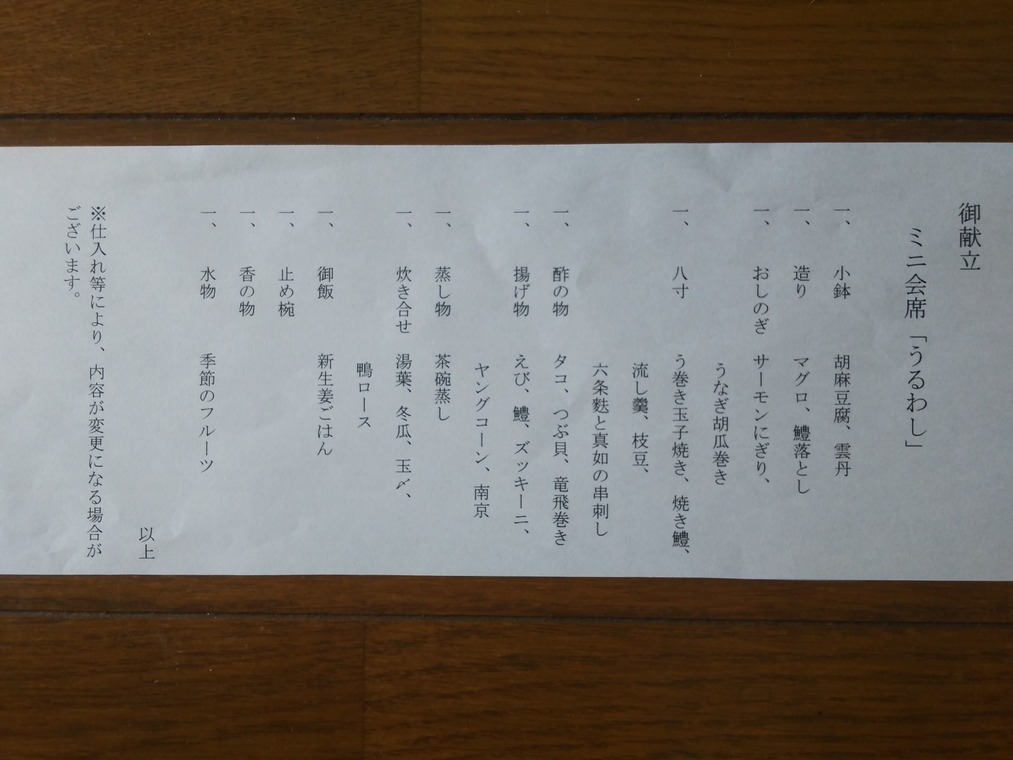 御献立
ミニ会席「うるわし」
一、小鉢 胡麻豆腐、雲丹
一、造り マグロ、鱧落とし
一、おしのぎ サーモンにぎり、
うなぎ胡瓜巻き
一、八寸 う巻き玉子焼き、焼き鱧、
流し羹、枝豆、
六条麩と真如の串刺し
一、酢の物 タコ、つぶ貝、竜飛巻き
一、揚げ物 えび、鱧、ズッキーニ、
ヤングコーン、南京
一、蒸し物 茶碗蒸し
一、炊き合せ 湯葉、冬瓜、玉〆、
鴨ロース
一、御飯 新生姜ごはん
一、止め椀
一、香の物
一、水物 季節のフルーツ
以上
※仕入れ等により、内容が変更になる場合が
ございます。